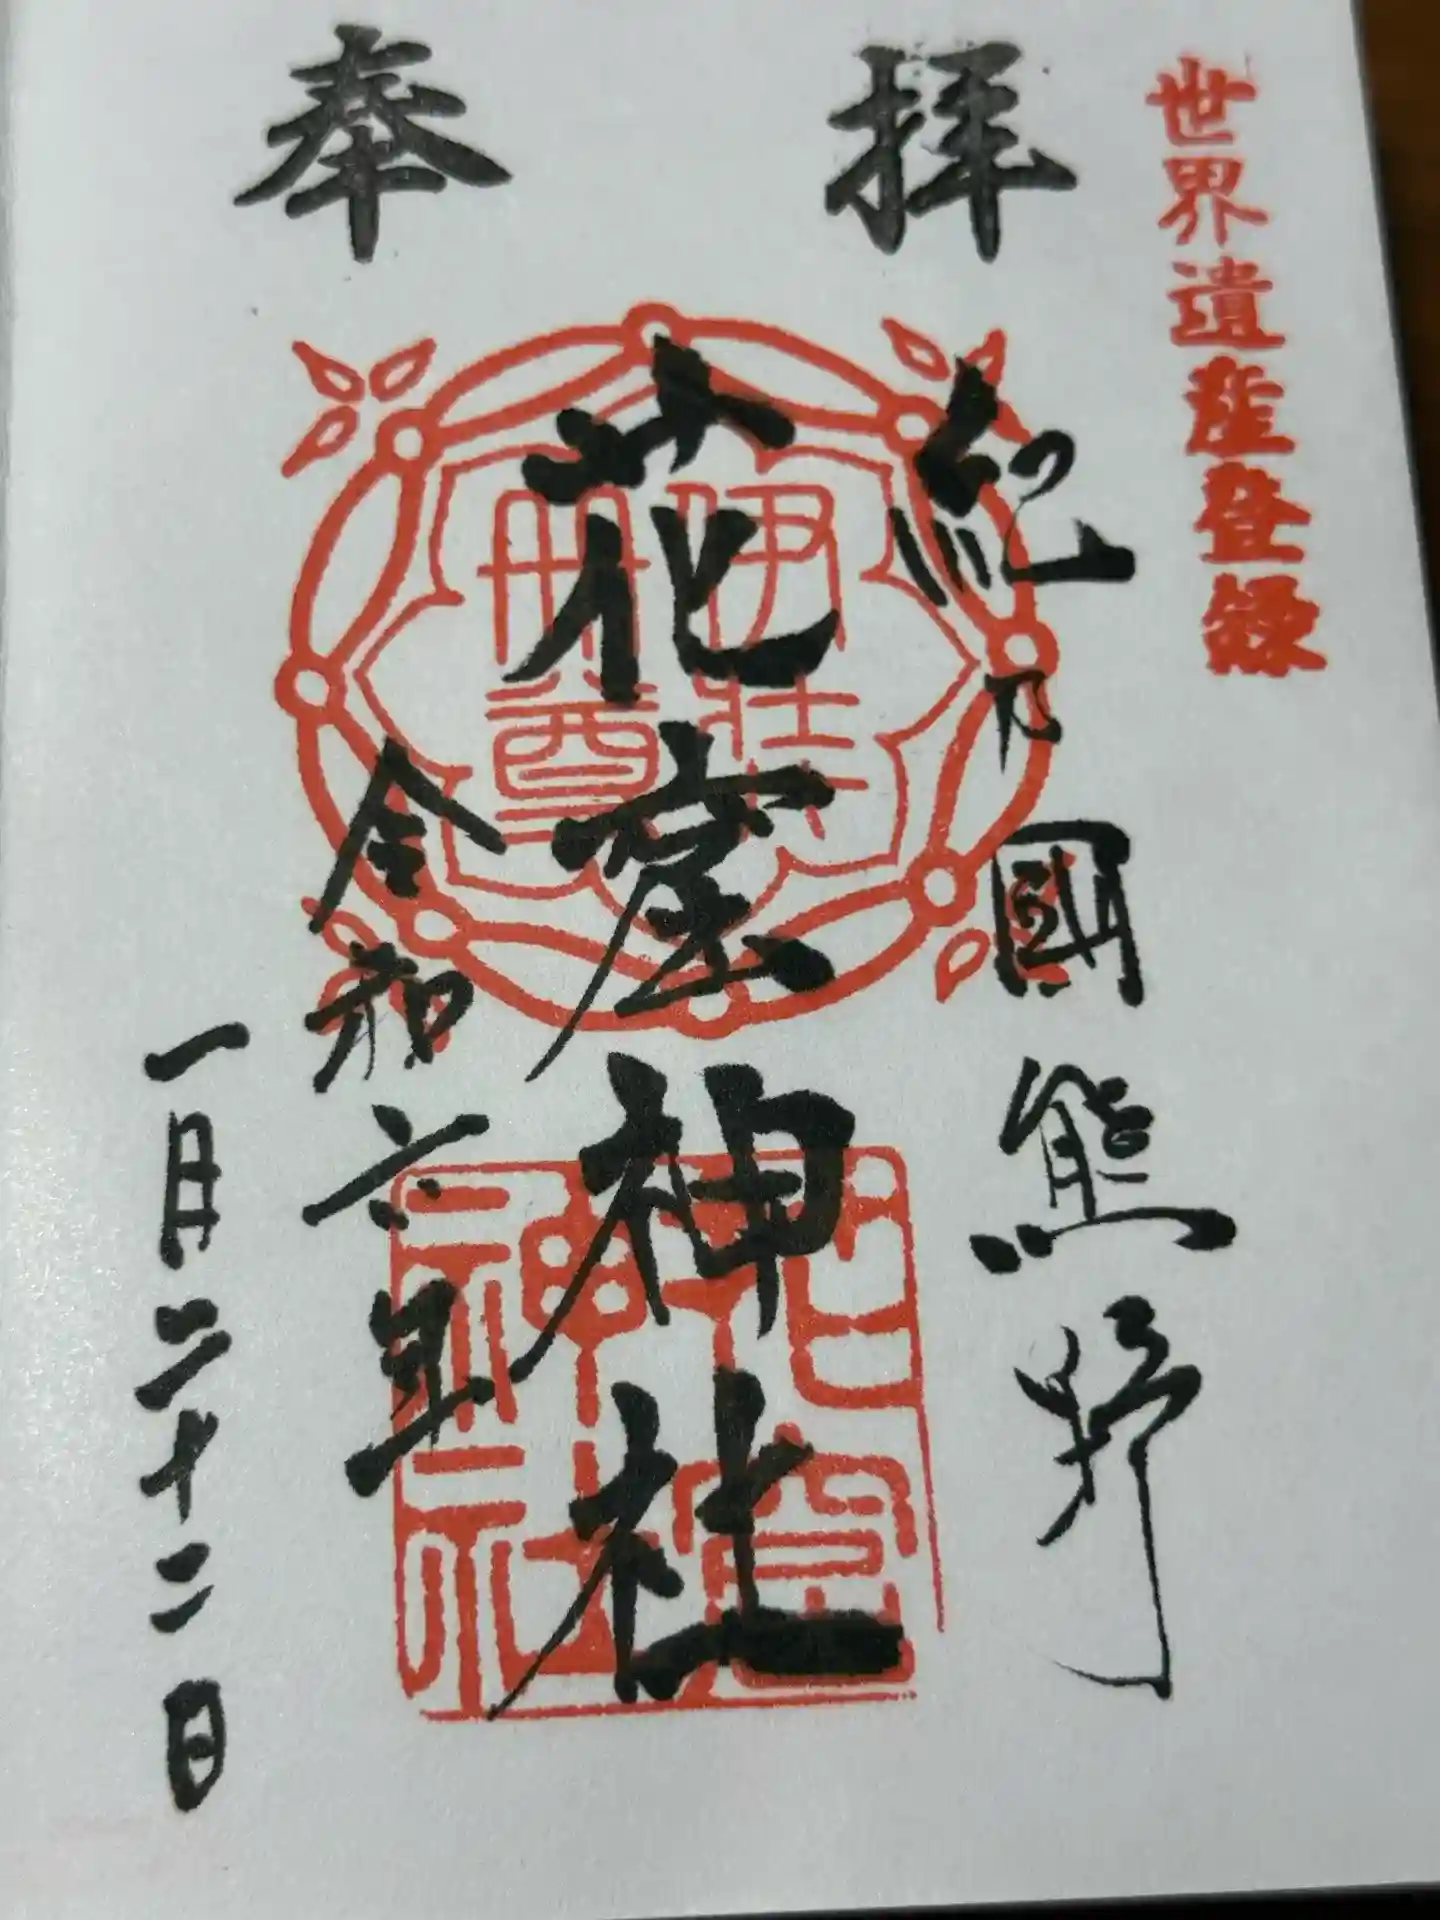 世界遺産登録
奉拝
紀乃國熊野
花窟神社
令和六年
一月二十二日
伊弉
冊尊
花窟
神社